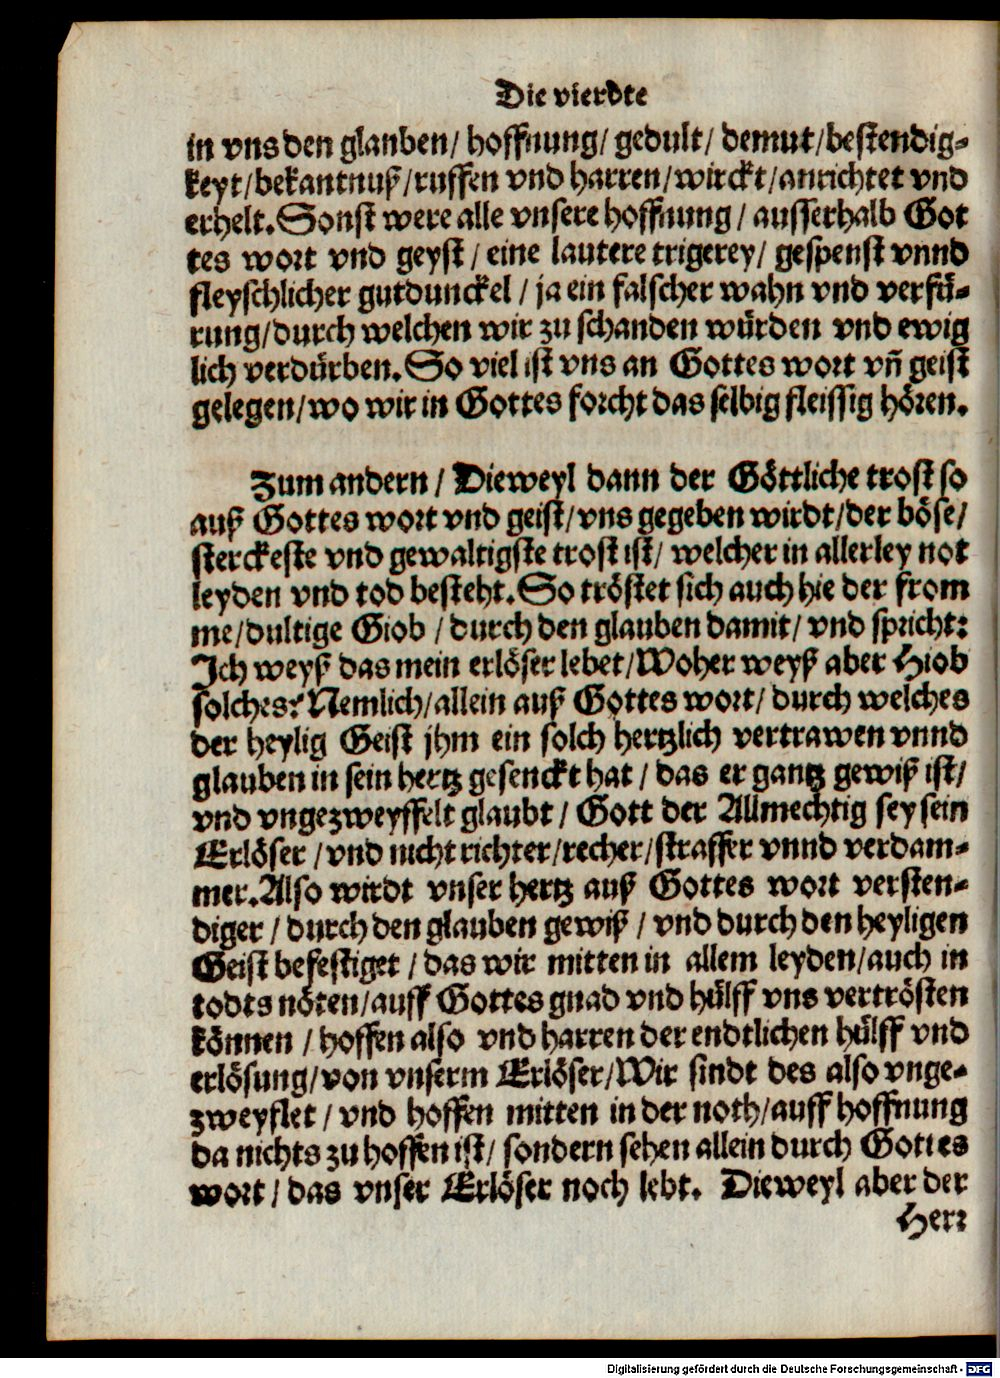 Die vierdte
in vns den glauben/ hoffnung/ gedult/ demut/ bestendig-
keyt/ bekantnuß/ ruffen vnd harren/ wirckt/ anrichtet vnd
erhelt. Sonst were alle vnsere hoffnung/ ausserhalb Got
tes wort vnd geyst/ eine lautere trigerey/ gespenst vnnd
fleyschlicher gutdunckel/ ja ein falscher wahn vnd verfü-
rung/ durch welchen wir zu schanden würden vnd ewig
lich verdürben. So viel ist vns an Gottes wort vñ geist
gelegen/ wo wir in Gottes forcht das selbig fleissig hören.
Zum andern/ Dieweyl dann der Göttliche trost so
auß Gottes wort vnd geist/ vns gegeben wirdt/ der böse/
sterckeste vnd gewaltigste trost ist/ welcher in allerley not
leyden vnd tod besteht. So tröstet sich auch hie der from
me/ dultige Giob/ durch den glauben damit/ vnd spricht:
Ich weyß das mein erlöser lebet/ Woher weyß aber Hiob
solches? Nemlich/ allein auß Gottes wort/ durch welches
der heylig Geist jhm ein solch hertzlich vertrawen vnnd
glauben in sein hertz gesenckt hat/ das er gantz gewiß ist/
vnd vngezweyffelt glaubt/ Gott der Allmechtig sey sein
Erlöser/ vnd nicht richter/ recher/ straffer vnnd verdam-
mer. Also wirdt vnser hertz auß Gottes wort versten-
diger/ durch den glauben gewiß/ vnd durch den heyligen
Geist befestiget/ das wir mitten in allem leyden/ auch in
todts nöten/ auff Gottes gnad vnd hülff vns vertrösten
können/ hoffen also vnd harren der endtlichen hülff vnd
erlösung/ von vnserm Erlöser/ Wir sindt des also vnge-
zweyflet/ vnd hoffen mitten in der noth/ auff hoffnung
da nichts zu hoffen ist/ sondern sehen allein durch Gottes
wort/ das vnser Erlöser noch lebt. Dieweyl aber der
Herr
Digitalisierung gefördert durch die Deutsche Forschungsgemeinschaft - DFG